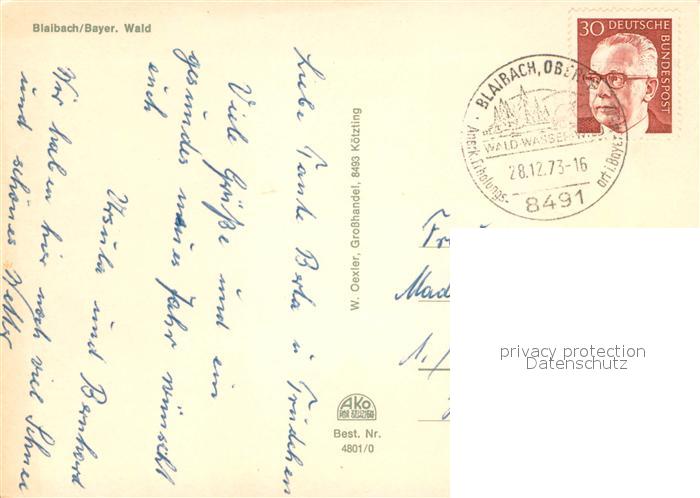 Blaibach/Bayer. Wald
Liebe Tante Berta u Trudchen
Viele Grüße und ein
gesundes neues Jahr wünscht
euch
Ursula und Bernhard
Wir haben hier noch viel Schnee
und schönes Wetter
W. Oexler, Großhandel, 8493 Kötzting
AKO
Best. Nr.
4801/0
30 DEUTSCHE BUNDESPOST
BLAIBACH, OBERPF
WALD-WASSER-WIESEN
Anerk. Erholungs-
ort i. Bayer
28.12.73-16
8491
Mad
1./
privacy protection
Datenschutz